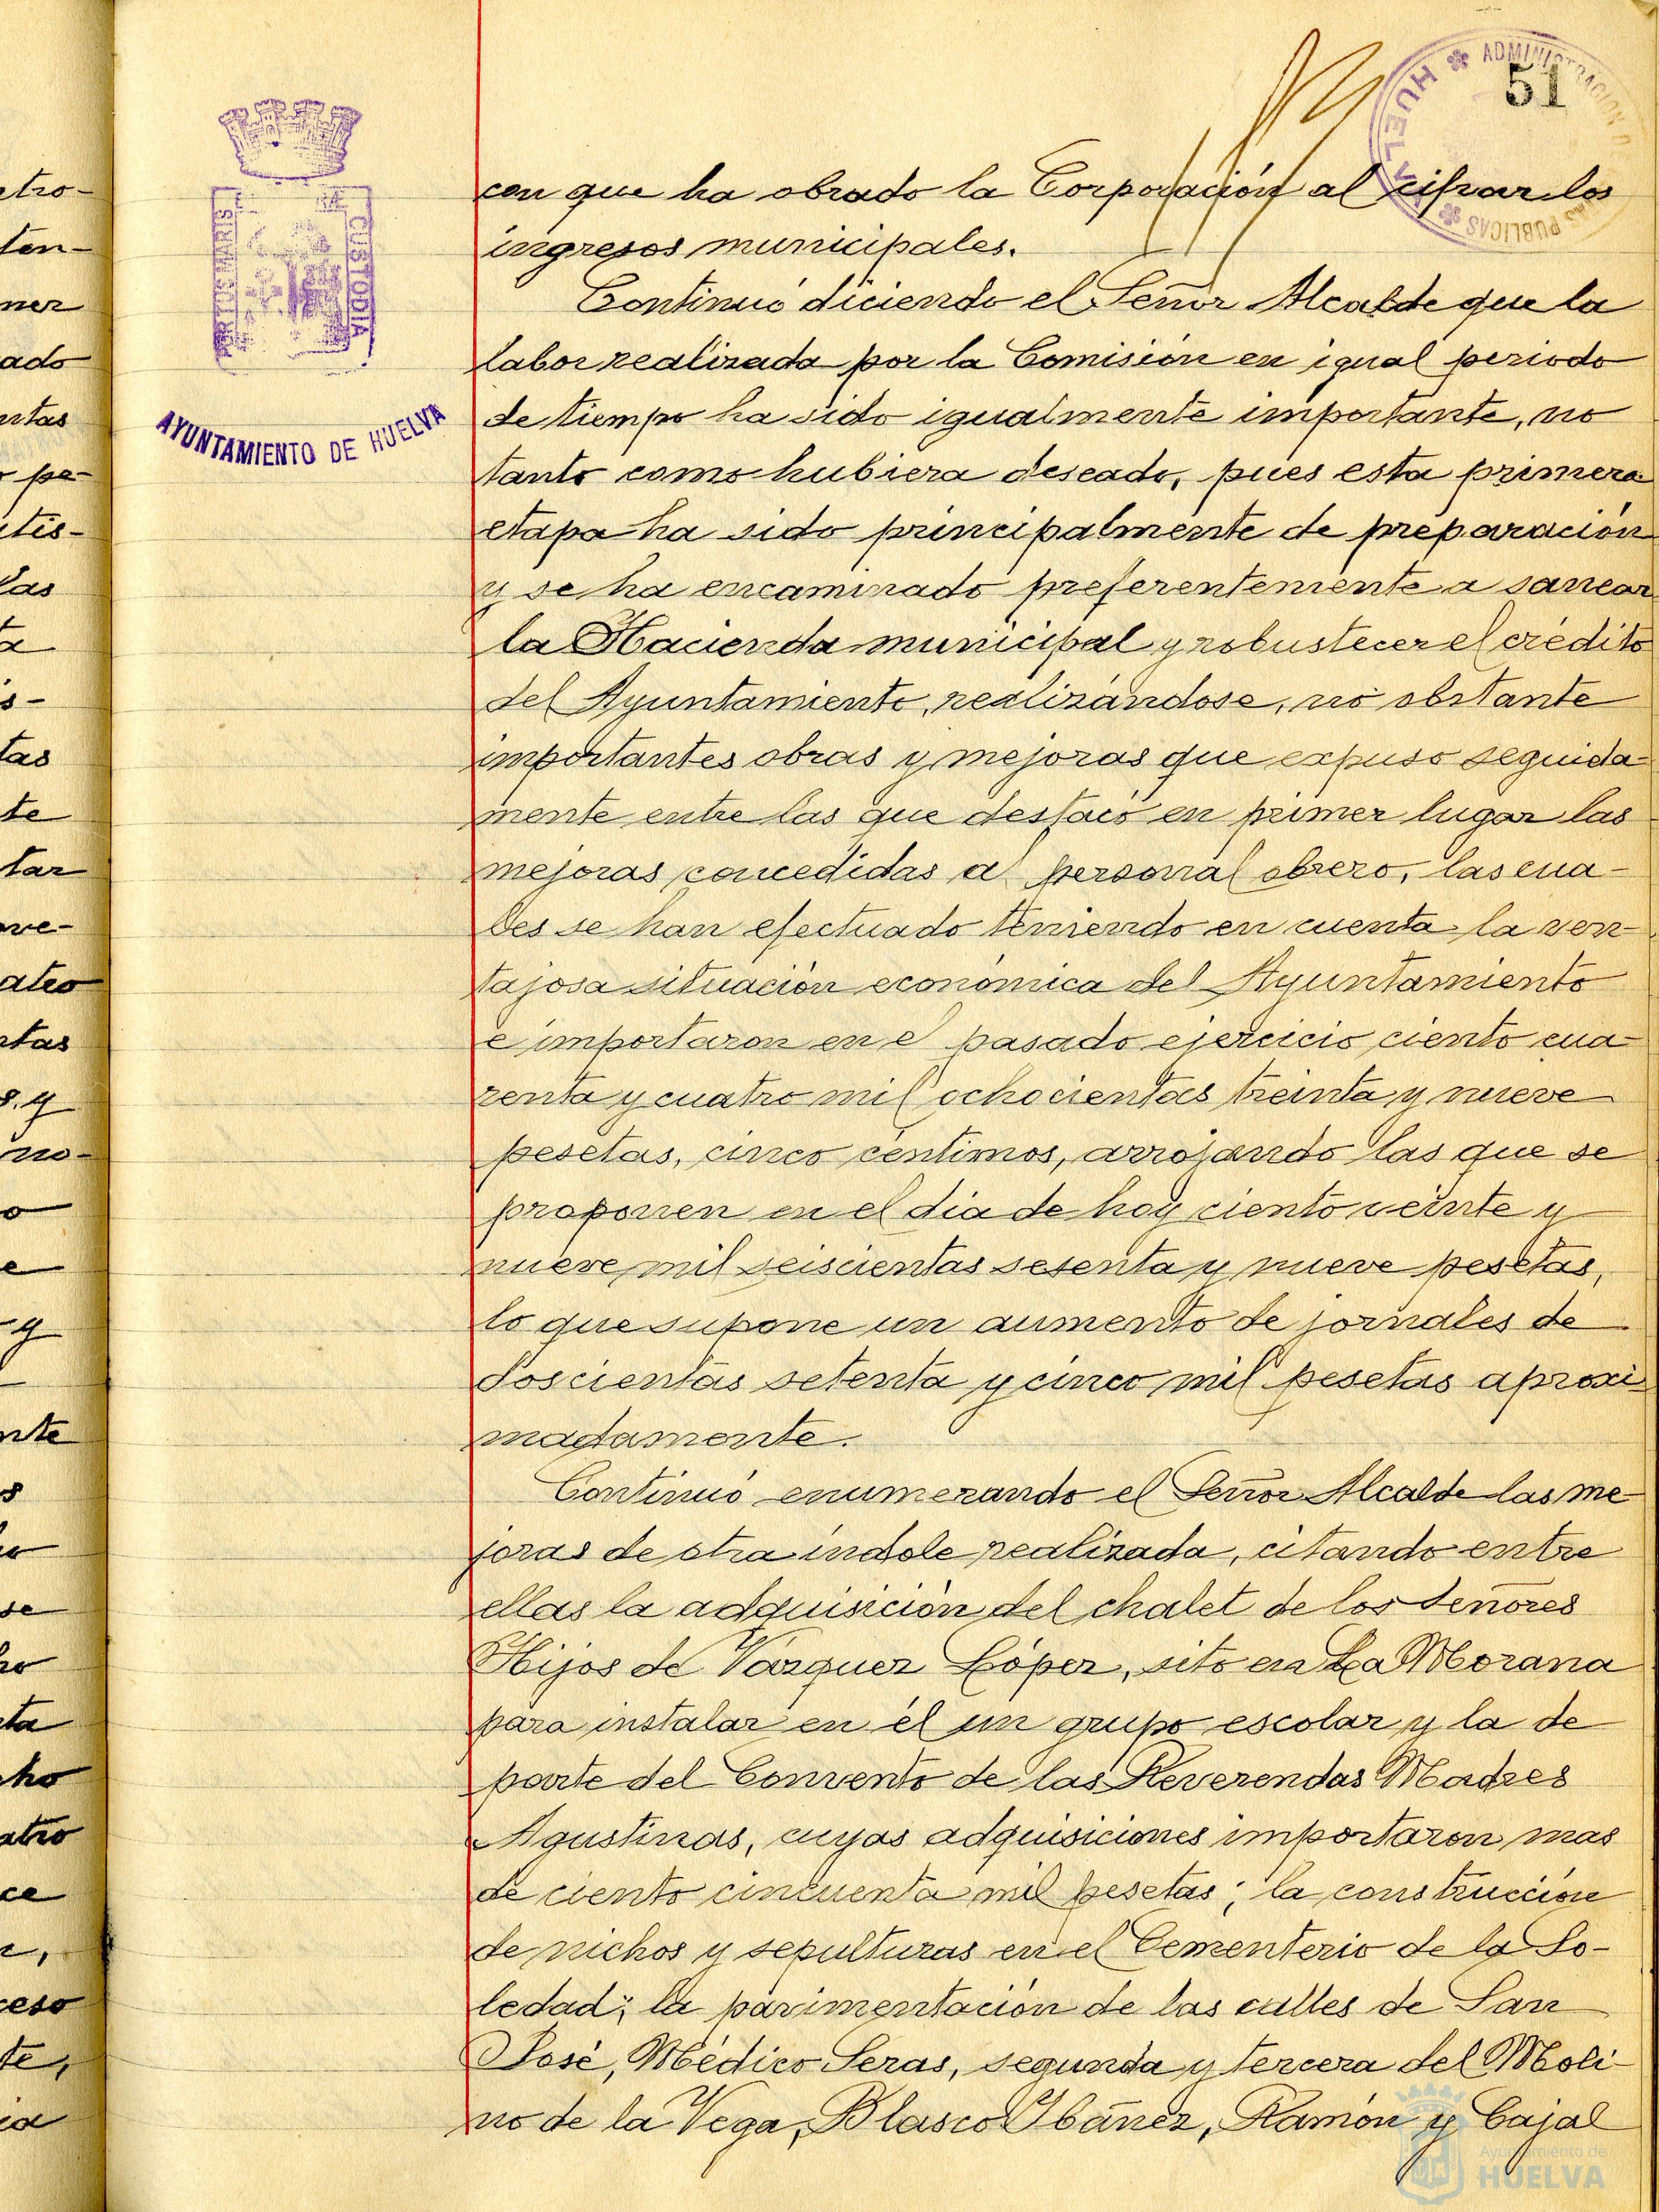 51
ADMINISTRACION
HUELVA
PUBLICAS
PORTUS MARIS
CUSTODIA
AYUNTAMIENTO DE HUELVA
con que ha obrado la Corporación al cifrar los
ingresos municipales.
Continuó diciendo el Señor Alcalde que la
labor realizada por la Comisión en igual periodo
de tiempo ha sido igualmente importante, no
tanto como hubiera deseado, pues esta primera
etapa ha sido principalmente de preparación
y se ha encaminado preferentemente a sanear
la Hacienda municipal y robustecer el crédito
del Ayuntamiento, realizándose, no obstante
importantes obras y mejoras que expuso seguida-
mente entre las que destacó en primer lugar las
mejoras concedidas al personal obrero, las cua-
les se han efectuado teniendo en cuenta la ven-
tajosa situación económica del Ayuntamiento
e importaron en el pasado ejercicio ciento cua-
renta y cuatro mil ochocientas treinta y nueve
pesetas, cinco céntimos, arrojando las que se
proponen en el dia de hoy ciento veinte y
nueve mil seiscientas sesenta y nueve pesetas,
lo que supone un aumento de jornales de
doscientas setenta y cinco mil pesetas aproxi-
madamente.
Continuó enumerando el Señor Alcalde las me-
joras de otra indole realizada, citando entre
ellas la adquisición del chalet de los Señores
Hijos de Vázquez López, sito en La Morana
para instalar en él un grupo escolar y la de
parte del Convento de las Reverendas Madres
Agustinas, cuyas adquisiciones importaron mas
de ciento cincuenta mil pesetas; la construcción
de nichos y sepulturas en el Cementerio de la So-
ledad; la pavimentación de las calles de San
José, Médico Seras, segunda y tercera del Moli-
no de la Vega, Blasco Ibañez, Ramón y Cajal
Ayuntamiento de
HUELVA